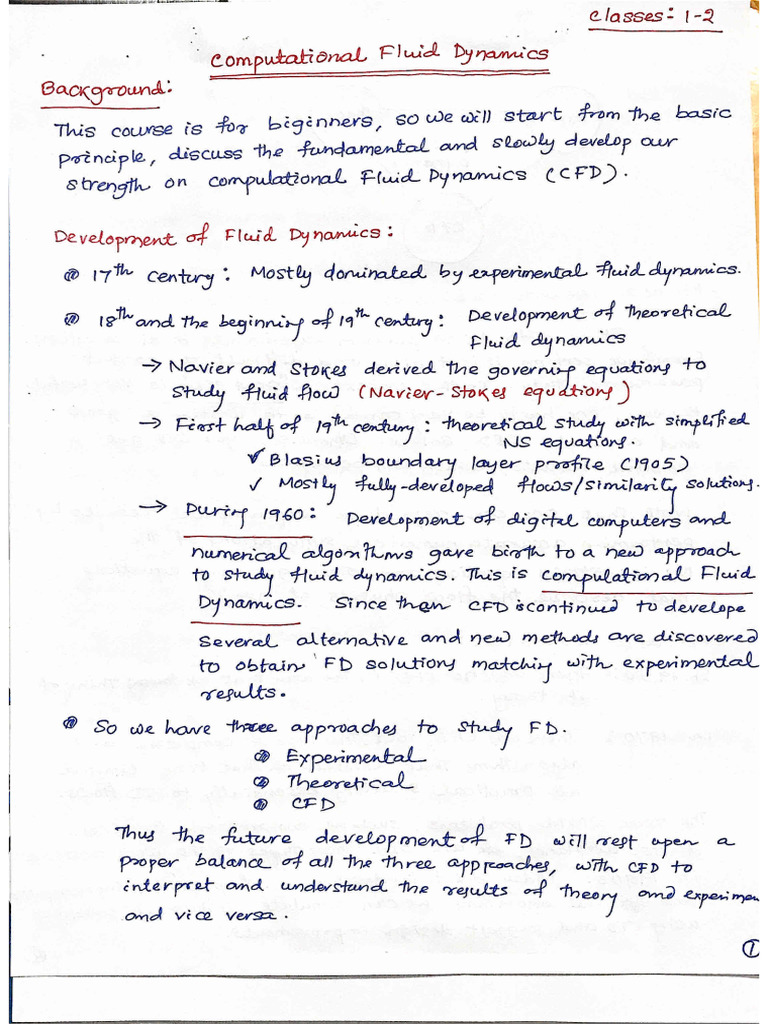 Classes: 1-2
Computational Fluid Dynamics
Background:
This course is for biginners, so we will start from the basic
principle, discuss the fundamental and slowly develop our
strength on computational Fluid Dynamics (CFD).
Development of Fluid Dynamics:
17th century: Mostly dominated by experimental fluid dynamics.
18th and the beginning of 19th century: Development of Theoretical
Fluid dynamics
→ Navier and Stokes derived the governing equations to
study fluid flow (Navier-Stokes equations)
→ First half of 19th century: theoretical study with simplified
NS equations.
✓ Blasius boundary layer profile (1905)
✓ Mostly fully-developed flows/similarity solutions.
→ During 1960: Development of digital computers and
numerical algorithms gave birth to a new approach
to study fluid dynamics. This is computational Fluid
Dynamics. Since then CFD is continued to develope
Several alternative and new methods are discovered
to obtain FD solutions matching with experimental
results.
So we have three approaches to study FD.
Experimental
Theoretical
CFD
Thus the future development of FD will rest upon a
proper balance of all the three approaches, with CFD to
interpret and understand the results of theory and experimen
and vice versa.
1